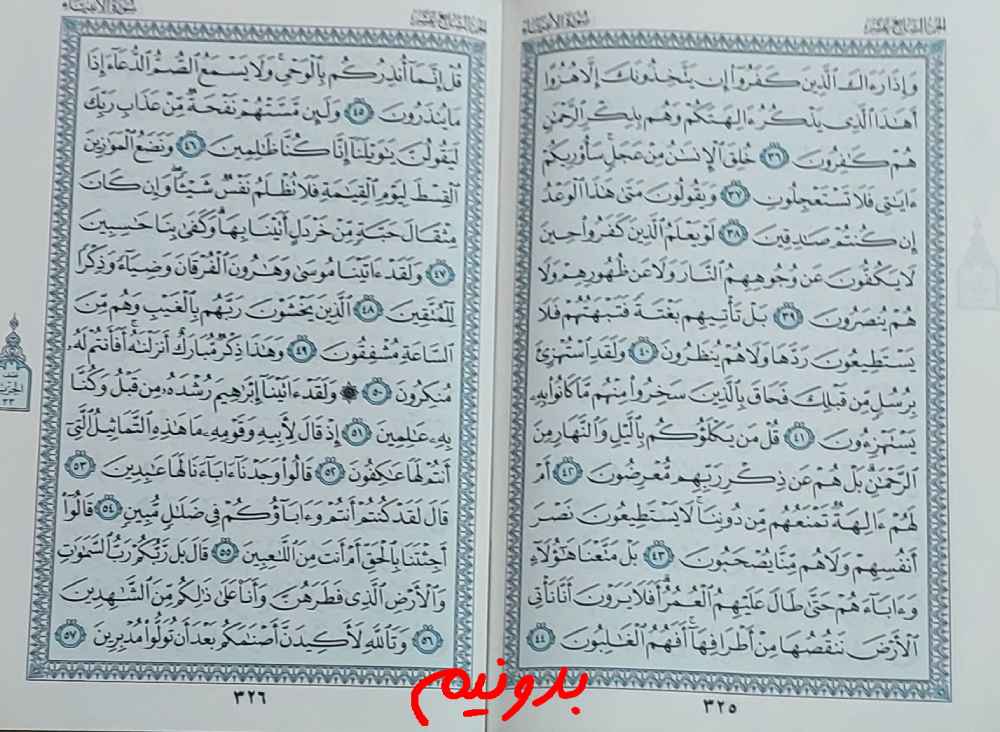 سورة الأنبياء
الجزء السابع عشر
وَإِذَا رَءَاكَ ٱلَّذِينَ كَفَرُوٓا۟ إِن يَتَّخِذُونَكَ إِلَّا هُزُوًا
أَهَـٰذَا ٱلَّذِى يَذْكُرُ ءَالِهَتَكُمْ وَهُم بِذِكْرِ ٱلرَّحْمَـٰنِ
هُمْ كَـٰفِرُونَ ٣٦ خُلِقَ ٱلْإِنسَـٰنُ مِنْ عَجَلٍ ۚ سَأُو۟رِيكُمْ
ءَايَـٰتِى فَلَا تَسْتَعْجِلُونِ ٣٧ وَيَقُولُونَ مَتَىٰ هَـٰذَا ٱلْوَعْدُ
إِن كُنتُمْ صَـٰدِقِينَ ٣٨ لَوْ يَعْلَمُ ٱلَّذِينَ كَفَرُوا۟ حِينَ
لَا يَكُفُّونَ عَن وُجُوهِهِمُ ٱلنَّارَ وَلَا عَن ظُهُورِهِمْ وَلَا
هُمْ يُنصَرُونَ ٣٩ بَلْ تَأْتِيهِم بَغْتَةً فَتَبْهَتُهُمْ فَلَا
يَسْتَطِيعُونَ رَدَّهَا وَلَا هُمْ يُنظَرُونَ ٤٠ وَلَقَدِ ٱسْتُهْزِئَ
بِرُسُلٍ مِّن قَبْلِكَ فَحَاقَ بِٱلَّذِينَ سَخِرُوا۟ مِنْهُم مَّا كَانُوا۟ بِهِۦ
يَسْتَهْزِءُونَ ٤١ قُلْ مَن يَكْلَؤُكُم بِٱلَّيْلِ وَٱلنَّهَارِ مِنَ
ٱلرَّحْمَـٰنِ ۗ بَلْ هُمْ عَن ذِكْرِ رَبِّهِم مُّعْرِضُونَ ٤٢ أَمْ
لَهُمْ ءَالِهَةٌ تَمْنَعُهُم مِّن دُونِنَا ۚ لَا يَسْتَطِيعُونَ نَصْرَ
أَنفُسِهِمْ وَلَا هُم مِّنَّا يُصْحَبُونَ ٤٣ بَلْ مَتَّعْنَا هَـٰٓؤُلَآءِ
وَءَابَآءَهُمْ حَتَّىٰ طَالَ عَلَيْهِمُ ٱلْعُمُرُ ۗ أَفَلَا يَرَوْنَ أَنَّا نَأْتِى
ٱلْأَرْضَ نَنقُصُهَا مِنْ أَطْرَافِهَآ ۚ أَفَهُمُ ٱلْغَـٰلِبُونَ ٤٤
٣٢٥
الجزء السابع عشر
سورة الأنبياء
قُلْ إِنَّمَآ أُنذِرُكُم بِٱلْوَحْىِ ۚ وَلَا يَسْمَعُ ٱلصُّمُّ ٱلدُّعَآءَ إِذَا
مَا يُنذَرُونَ ٤٥ وَلَئِن مَّسَّتْهُمْ نَفْحَةٌ مِّنْ عَذَابِ رَبِّكَ
لَيَقُولُنَّ يَـٰوَيْلَنَآ إِنَّا كُنَّا ظَـٰلِمِينَ ٤٦ وَنَضَعُ ٱلْمَوَٰزِينَ
ٱلْقِسْطَ لِيَوْمِ ٱلْقِيَـٰمَةِ فَلَا تُظْلَمُ نَفْسٌ شَيْـًٔا ۖ وَإِن كَانَ
مِثْقَالَ حَبَّةٍ مِّنْ خَرْدَلٍ أَتَيْنَا بِهَا ۗ وَكَفَىٰ بِنَا حَـٰسِبِينَ
٤٧ وَلَقَدْ ءَاتَيْنَا مُوسَىٰ وَهَـٰرُونَ ٱلْفُرْقَانَ وَضِيَآءً وَذِكْرًا
لِّلْمُتَّقِينَ ٤٨ ٱلَّذِينَ يَخْشَوْنَ رَبَّهُم بِٱلْغَيْبِ وَهُم مِّنَ
ٱلسَّاعَةِ مُشْفِقُونَ ٤٩ وَهَـٰذَا ذِكْرٌ مُّبَارَكٌ أَنزَلْنَـٰهُ ۚ أَفَأَنتُمْ لَهُۥ
مُنكِرُونَ ٥٠ ۞ وَلَقَدْ ءَاتَيْنَآ إِبْرَٰهِيمَ رُشْدَهُۥ مِن قَبْلُ وَكُنَّا
بِهِۦ عَـٰلِمِينَ ٥١ إِذْ قَالَ لِأَبِيهِ وَقَوْمِهِۦ مَا هَـٰذِهِ ٱلتَّمَاثِيلُ ٱلَّتِىٓ
أَنتُمْ لَهَا عَـٰكِفُونَ ٥٢ قَالُوا۟ وَجَدْنَآ ءَابَآءَنَا لَهَا عَـٰبِدِينَ ٥٣
قَالَ لَقَدْ كُنتُمْ أَنتُمْ وَءَابَآؤُكُمْ فِى ضَلَـٰلٍ مُّبِينٍ ٥٤ قَالُوٓا۟
أَجِئْتَنَا بِٱلْحَقِّ أَمْ أَنتَ مِنَ ٱللَّـٰعِبِينَ ٥٥ قَالَ بَل رَّبُّكُمْ رَبُّ ٱلسَّمَـٰوَٰتِ
وَٱلْأَرْضِ ٱلَّذِى فَطَرَهُنَّ وَأَنَا۠ عَلَىٰ ذَٰلِكُم مِّنَ ٱلشَّـٰهِدِينَ
٥٦ وَتَٱللَّهِ لَأَكِيدَنَّ أَصْنَـٰمَكُم بَعْدَ أَن تُوَلُّوا۟ مُدْبِرِينَ ٥٧
٣٢٦
بدونیم